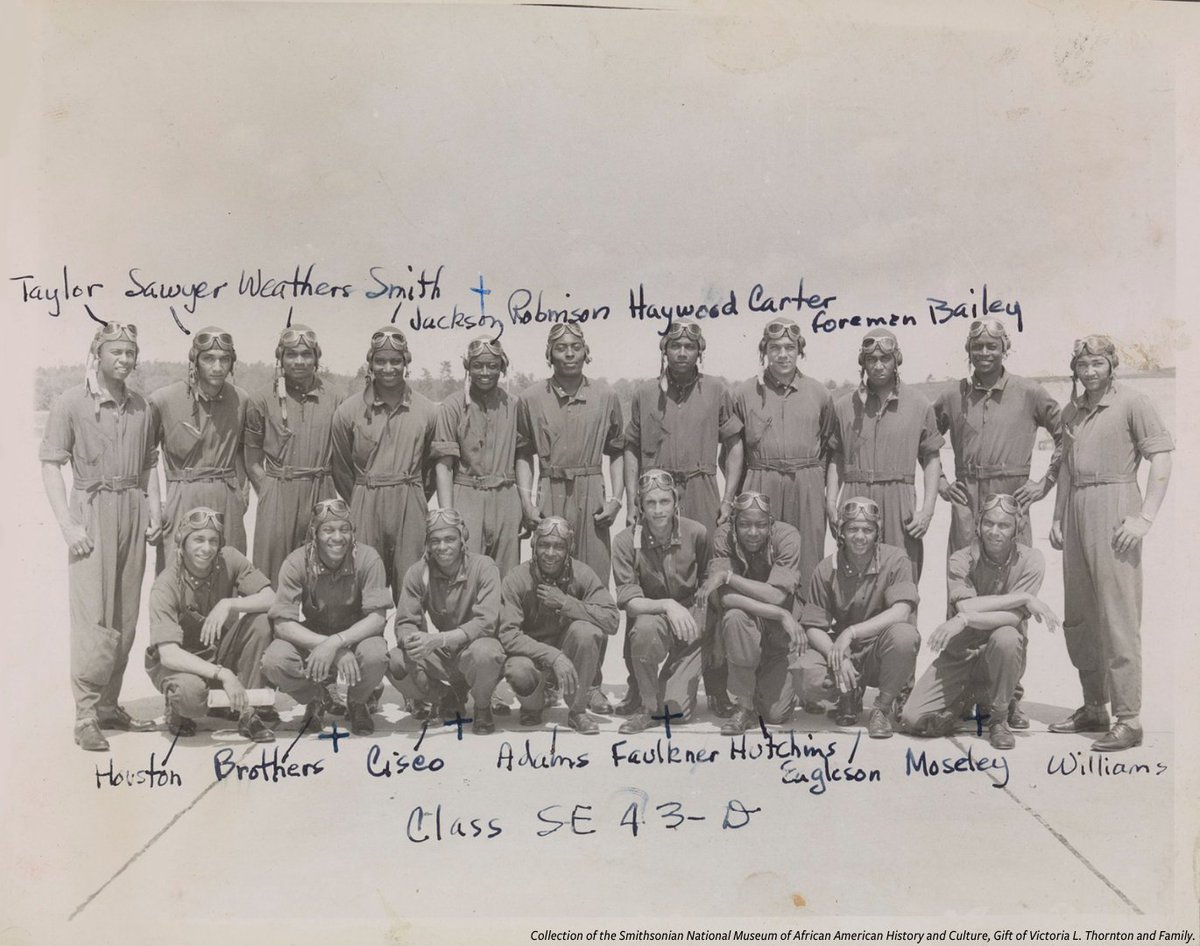 Taylor Sawyer Weathers Smith Jackson Robinson Haywood Carter Foreman Bailey
Houston Brothers Cisco Adams Faulkner Hutchins Eagleson Moseley Williams
Class SE 43-D
Collection of the Smithsonian National Museum of African American History and Culture, Gift of Victoria L. Thornton and Family.